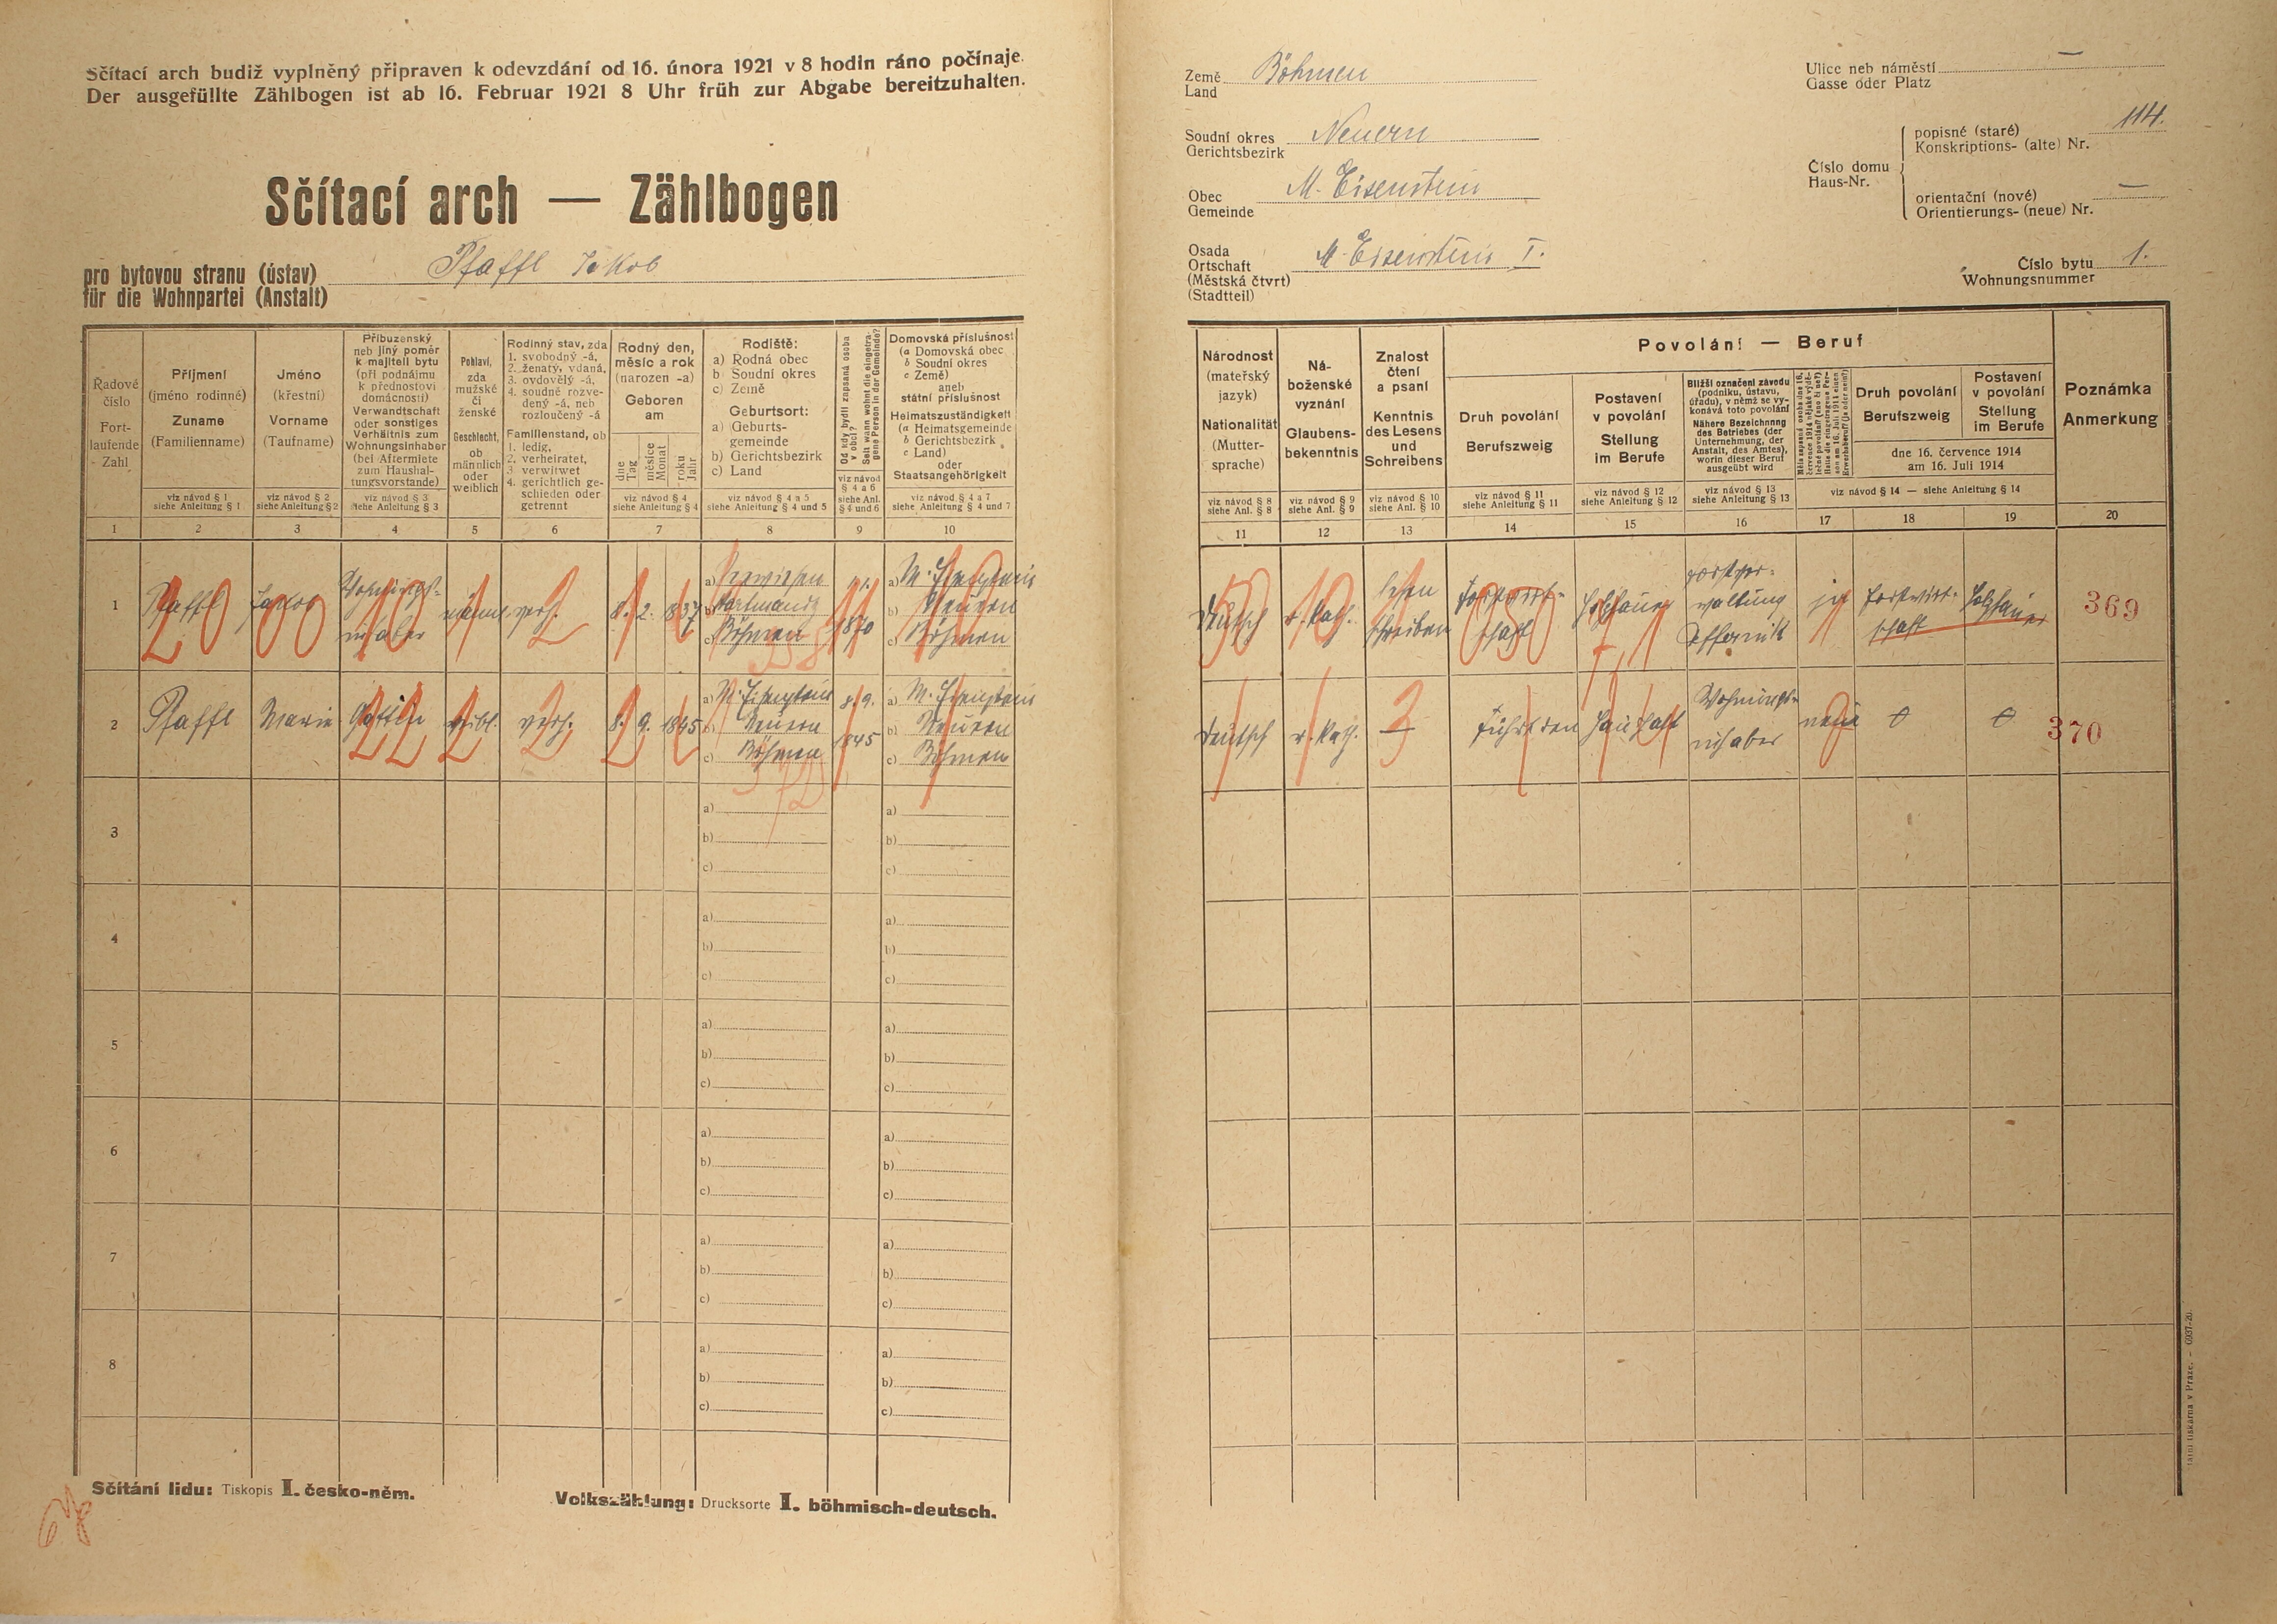 Sčítací arch budiž vyplněný připraven k odevzdání od 16. února 1921 v 8 hodin ráno počínaje.
Der ausgefüllte Zählbogen ist ab 16. Februar 1921 8 Uhr früh zur Abgabe bereitzuhalten.
Sčítací arch — Zählbogen
pro bytovou stranu (ústav)
für die Wohnpartei (Anstalt)
Pfaffl Jakob
Řadové číslo
Fortlaufende Zahl
1
Příjmení
(jméno rodinné)
Zuname
(Familienname)
viz návod § 1
siehe Anleitung § 1
2
Jméno
(křestní)
Vorname
(Taufname)
viz návod § 2
siehe Anleitung § 2
3
Příbuzenský
neb jiný poměr
k majiteli bytu
(při podnájmu
k přednostovi
domácnosti)
Verwandtschaft
oder sonstiges
Verhältnis zum
Wohnungsinhaber
(bei Aftermiete
zum Haushal-
tungsvorstande)
viz návod § 3
siehe Anleitung § 3
4
Pohlaví,
zda
mužské
či
ženské
Geschlecht,
ob
männlich
oder
weiblich
5
Rodinný stav, zda
1. svobodný -á,
2. ženatý, vdaná,
3. ovdovělý -á,
4. soudně rozve-
dený -á, neb
rozloučený -á
Familienstand, ob
1. ledig,
2. verheiratet,
3. verwitwet
4. gerichtlich ge-
schieden oder
getrennt
6
Rodný den,
měsíc a rok
(narozen -a)
Geboren
am
dne
Tag
měsíce
Monat
roku
Jahr
viz návod § 4
siehe Anleitung § 4
7
Rodiště:
a) Rodná obec
b) Soudní okres
c) Země
Geburtsort:
a) Geburts-
gemeinde
b) Gerichtsbezirk
c) Land
viz návod § 4 a 5
siehe Anleitung § 4 und 5
8
Od kdy bydlí zapsaná osoba
v obci?
Seit wann wohnt die eingetra-
gene Person in der Gemeinde?
viz návod
§ 4 a 6
siehe Anl.
§ 4 und 6
9
Domovská příslušnost
(a Domovská obec
b Soudní okres
c Země)
aneb
státní příslušnost
Heimatszuständigkeit
(a Heimatsgemeinde
b Gerichtsbezirk
c Land)
oder
Staatsangehörigkeit
viz návod § 4 a 7
siehe Anleitung § 4 und 7
10
1 Pfaffl Jakob Wohnungs-
inhaber männl. verh. 8. 2. 1837
b) Hartmanitz
c) Böhmen
1870
a) M. Eisenstein
b) Neuern
c) Böhmen
2 Pfaffl Marie Gattin weibl. verh. 8. 9. 1845
a) M. Eisenstein
b) Neuern
c) Böhmen
8.9.
1845
a) M. Eisenstein
b) Neuern
c) Böhmen
3
a)
b)
c)
a)
b)
c)
4
a)
b)
c)
a)
b)
c)
5
a)
b)
c)
a)
b)
c)
6
a)
b)
c)
a)
b)
c)
7
a)
b)
c)
a)
b)
c)
8
a)
b)
c)
a)
b)
c)
Sčítání lidu: Tiskopis I. česko-něm.
Volkszählung: Drucksorte I. böhmisch-deutsch.
Země
Land
Böhmen
Soudní okres
Gerichtsbezirk
Neuern
Obec
Gemeinde
M. Eisenstein
Osada
Ortschaft
(Městská čtvrť)
(Stadtteil)
M. Eisenstein I.
Ulice neb náměstí —
Gasse oder Platz
Číslo domu
Haus-Nr.
popisné (staré)
Konskriptions- (alte) Nr.
114.
orientační (nové)
Orientierungs- (neue) Nr.
—
Číslo bytu
Wohnungsnummer
1.
Národnost
(mateřský
jazyk)
Nationalität
(Mutter-
sprache)
viz návod § 8
siehe Anl. § 8
11
Ná-
boženské
vyznání
Glaubens-
bekenntnis
viz návod § 9
siehe Anl. § 9
12
Znalost
čtení
a psaní
Kenntnis
des Lesens
und
Schreibens
viz návod § 10
siehe Anl. § 10
13
Povolání — Beruf
Druh povolání
Berufszweig
viz návod § 11
siehe Anleitung § 11
14
Postavení
v povolání
Stellung
im Berufe
viz návod § 12
siehe Anleitung § 12
15
Bližší označení závodu
(podniku, ústavu,
úřadu), v němž se vy-
konává toto povolání
Nähere Bezeichnung
des Betriebes (der
Unternehmung, der
Anstalt, des Amtes),
worin dieser Beruf
ausgeübt wird
viz návod § 13
siehe Anleitung § 13
16
Měla zapsaná osoba dne 16.
července 1914 nějaké výdě-
lečné povolání? (ano či ne?)
Hatte die eingetragene Per-
son am 16. Juli 1914 einen
Erwerbsberuf? (ja oder nein?)
17
Druh povolání
Berufszweig
Postavení
v povolání
Stellung
im Berufe
dne 16. července 1914
am 16. Juli 1914
viz návod § 14 — siehe Anleitung § 14
18
19
Poznámka
Anmerkung
20
deutsch r. kath. lesen
schreiben Forstwirt-
schaft Holzhauer Forstver-
waltung
ja Forstwirt-
schaft Holzhauer 369
deutsch r. kath. — führt den Haushalt Wohnungs-
inhaber nein 0 0 370